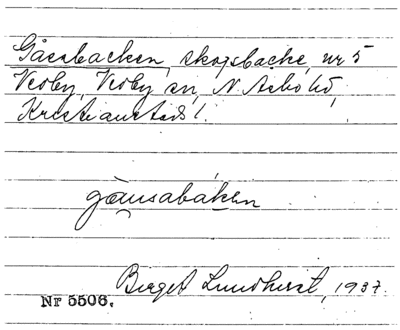 Gåsabacken, skogsbacke, nr 5
Verby, Verby sn, N Asbo hd,
Kristianstads l.
gåusabaken
Birger Lundkvist, 1937.
Nr 5506.